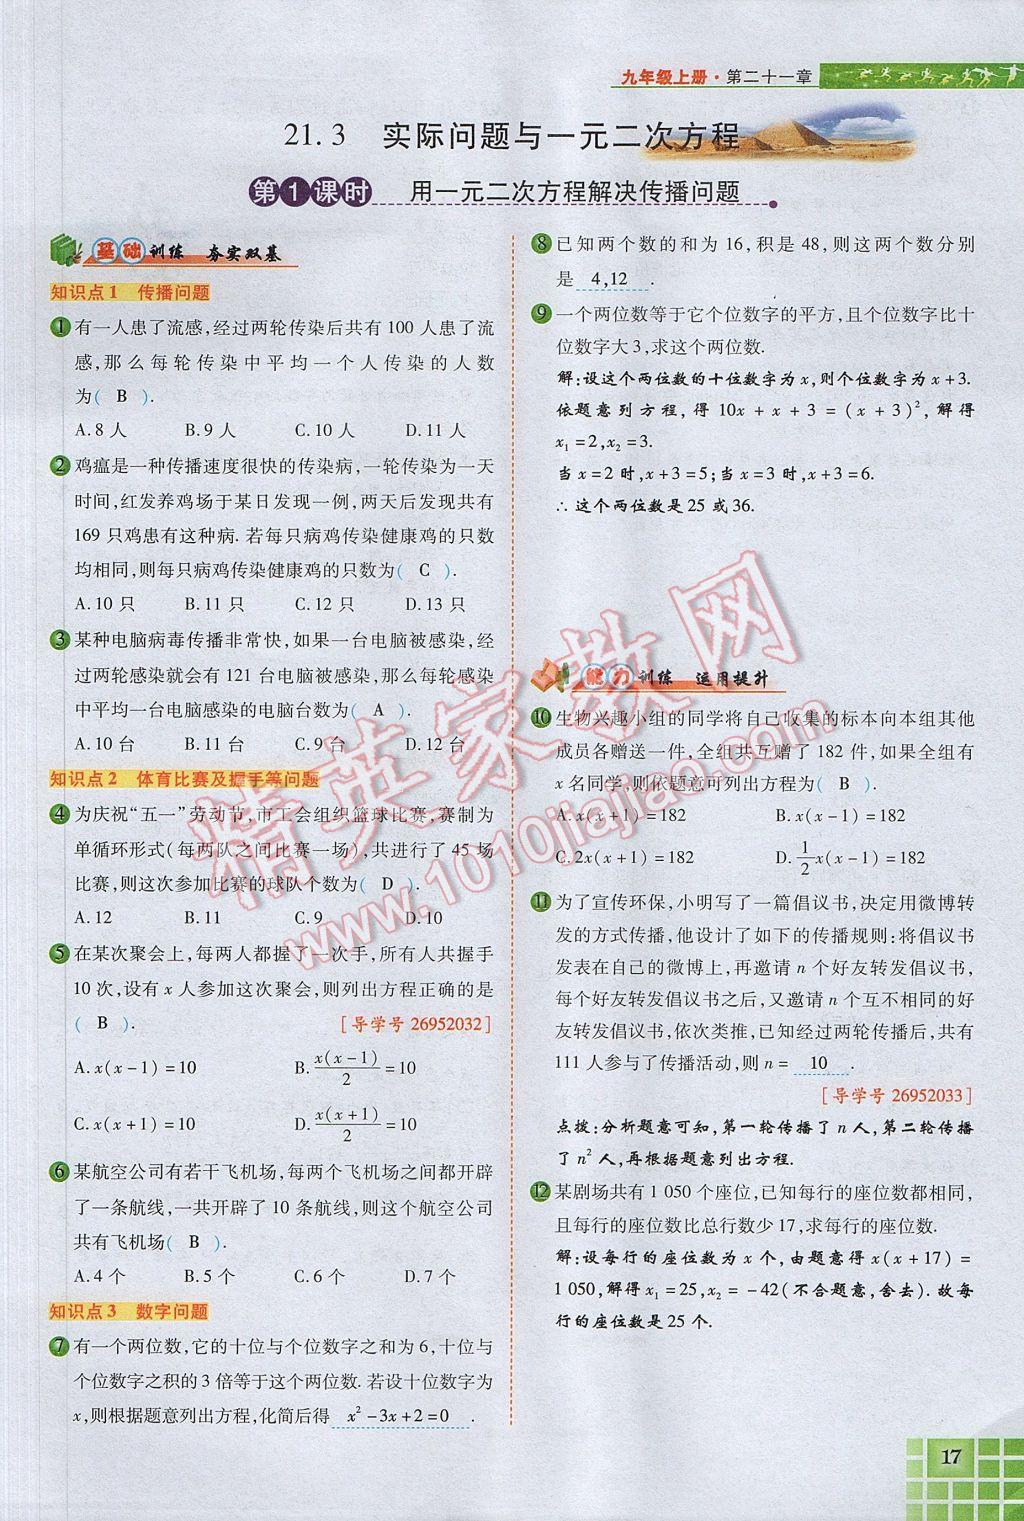 九年级上册·第二十一章
21.3 实际问题与一元二次方程
第1课时 用一元二次方程解决传播问题
基础训练 夯实双基
知识点1 传播问题
1 有一人患了流感,经过两轮传染后共有 100 人患了流
感,那么每轮传染中平均一个人传染的人数
为( B ).
A.8 人 B.9 人 C.10 人 D.11 人
2 鸡瘟是一种传播速度很快的传染病,一轮传染为一天
时间,红发养鸡场于某日发现一例,两天后发现共有
169 只鸡患有这种病. 若每只病鸡传染健康鸡的只数
均相同,则每只病鸡传染健康鸡的只数为( C ).
A.10 只 B.11 只 C.12 只 D.13 只
3 某种电脑病毒传播非常快,如果一台电脑被感染,经
过两轮感染就会有 121 台电脑被感染,那么每轮感染
中平均一台电脑感染的电脑台数为( A ).
A.10 台 B.11 台 C.9 台 D.12 台
知识点2 体育比赛及握手等问题
4 为庆祝“五一”劳动节,市工会组织篮球比赛,赛制为
单循环形式(每两队之间比赛一场),共进行了 45 场
比赛,则这次参加比赛的球队个数为( D ).
A.12 B.11 C.9 D.10
5 在某次聚会上,每两人都握了一次手,所有人共握手
10 次,设有 x 人参加这次聚会,则列出方程正确的是
( B ) [导学号 26952032]
A.x(x−1)=10 B.x(x−1)/2=10
C.x(x+1)=10 D.x(x+1)/2=10
6 某航空公司有若干飞机场,每两个飞机场之间都开辟
了一条航线,一共开辟了 10 条航线,则这个航空公司
共有飞机场( B ).
A.4 个 B.5 个 C.6 个 D.7 个
知识点3 数字问题
7 有一个两位数,它的十位与个位数字之和为6,十位与
个位数字之积的 3 倍等于这个两位数. 若设十位数字为
x,则根据题意列出方程,化简后得 x²−3x+2=0 .
8 已知两个数的和为 16,积是 48,则这两个数分别
是 4,12 .
9 一个两位数等于它个位数字的平方,且个位数字比十
位数字大3,求这个两位数.
解:设这个两位数的十位数字为 x,则个位数字为 x+3.
依题意列方程,得 10x+x+3=(x+3)²,解得
x₁=2,x₂=3.
当 x=2 时,x+3=5;当 x=3 时,x+3=6.
∴ 这个两位数是 25 或 36.
能力训练 运用提升
10 生物兴趣小组的同学将自己收集的标本向本组其他
成员各赠送一件,全组共互赠了 182 件,如果全组有
x 名同学,则依题意可列出方程为( B ).
A.x(x+1)=182 B.x(x−1)=182
C.2x(x+1)=182 D.1/2x(x−1)=182
11 为了宣传环保,小明写了一篇倡议书,决定用微博转
发的方式传播,他设计了如下的传播规则:将倡议书
发表在自己的微博上,再邀请 n 个好友转发倡议书,
每个好友转发倡议书之后,又邀请 n 个互不相同的好
友转发倡议书,依次类推,已知经过两轮传播后,共有
111 人参与了传播活动,则 n= 10 .
[导学号 26952033]
点拨:分析题意可知,第一轮传播了 n 人,第二轮传播
了 n² 人,再根据题意列出方程.
12 某剧场共有 1 050 个座位,已知每行的座位数都相同,
且每行的座位数比总行数少 17,求每行的座位数.
解:设每行的座位数为 x 个,由题意得 x(x+17)=
1 050,解得 x₁=25,x₂=−42(不合题意,舍去). 故每
行的座位数是 25 个.
精英家教网
www.1010jiajiao.com
17